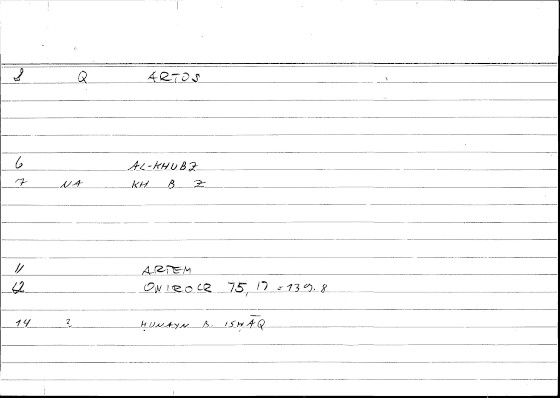 8 Q ARTOS
6 AL-KHUBZ
7 NA KH B Z
11 ARTEM
12 ONIROCR 75, 17 = 139.8
14 2 ḤUNAYN B. ISḤĀQ